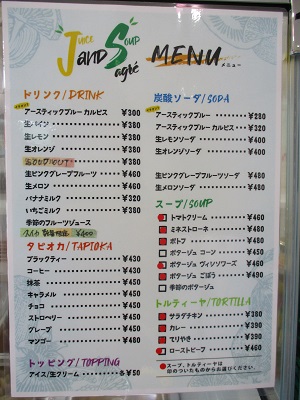 Juice
AND Soup
Sagré
MENU
メニュー
ドリンク/DRINK
アースティックブルー カルピス ¥300
生パイン ¥380
生レモン ¥380
生オレンジ ¥380
SOLD OUT ¥380
生ピングレープフルーツ ¥460
生メロン ¥460
バナナミルク ¥320
いちごミルク ¥380
季節のフルーツジュース
スイカ 数量限定 ¥400
タピオカ/TAPIOKA
ブラックティー ¥430
コーヒー ¥430
抹茶 ¥450
キャラメル ¥450
チョコ ¥450
ストロベリー ¥450
グレープ ¥450
マンゴー ¥480
トッピング/TOPPING
アイス/生クリーム 各¥50
炭酸ソーダ/SODA
アースティックブルー ¥280
アースティックブルー カルピス ¥320
生レモンソーダ ¥400
生オレンジソーダ ¥400
生ピングレープフルーツソーダ ¥480
生メロンソーダ ¥480
スープ/SOUP
トマトクリーム ¥460
ミネストローネ ¥480
ポトフ ¥480
ポタージュ コーン ¥450
ポタージュ ヴィシソワーズ ¥460
ポタージュ ごぼう ¥490
季節のポタージュ
トルティーヤ/TORTILLA
サラダチキン ¥380
カレー ¥390
てりやき ¥390
ローストビーフ ¥460
スープ、トルティーヤは
印のついたものからお選びください。